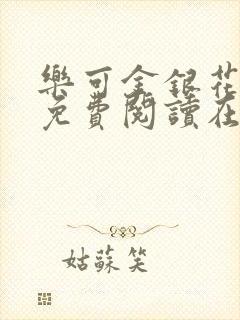 樂可金銀花
免費閱讀在
姑蘇笑